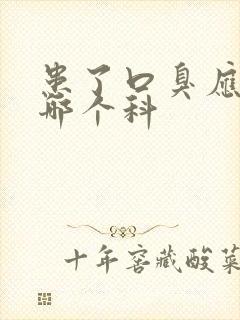 患了口臭应
哪个科
十年窖藏酸菜